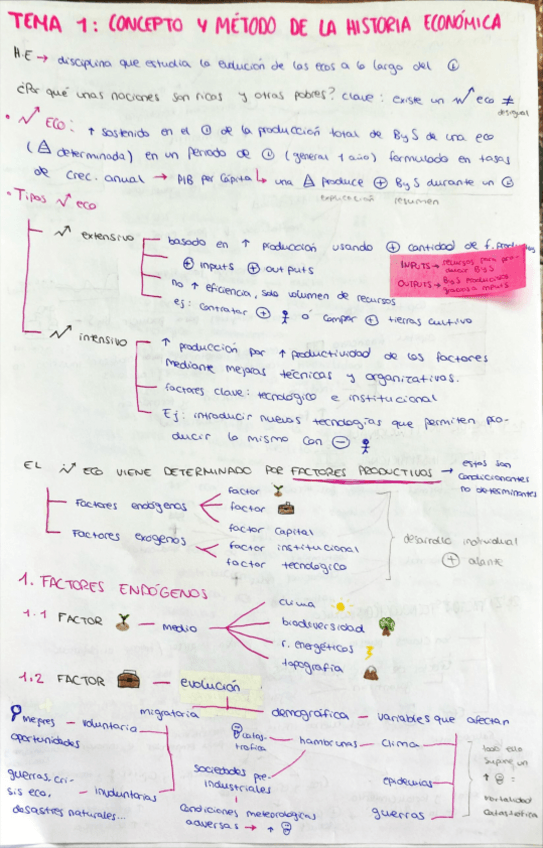 TEMA 1: CONCEPTO Y MÉTODO DE LA HISTORIA ECONÓMICA
H.E → disciplina que estudia la evolución de las ecos a lo largo del
¿Por qué unas naciones son ricas y otras pobres? clave: existe un eco ≠
desigual
• ECO: ↑ sostenido en el de la producción total de ByS de una eco
( determinada) en un periodo de (general 1 año) formulado en tasas
de crec. anual → PIB per cápita ↳ una produce + ByS durante un
explicación resumen
• Tipos eco
extensivo
basado en ↑ producción usando + cantidad de f. productivos
+ inputs + outputs
no ↑ eficiencia, solo volumen de recursos
ej: contratar + o comprar + tierras cultivo
INPUTS → recursos para pro-
ducir ByS
OUTPUTS → ByS producidos
gracias inputs
intensivo
↑ producción por ↑ productividad de los factores
mediante mejoras técnicas y organizativas.
factores clave: tecnológico e institucional
Ej: introducir nuevas tecnologías que permiten pro-
ducir lo mismo con −
EL ECO VIENE DETERMINADO POR FACTORES PRODUCTIVOS → estos son
condicionantes
no determinantes
Factores endógenos
factor
factor
Factores exógenos
factor capital
factor institucional
factor tecnológico
desarrollo individual
+
1. FACTORES ENDÓGENOS
1.1 FACTOR — medio
clima
biodiversidad
r. energéticos
topografía
1.2 FACTOR — evolución
migratoria
demográfica — variables que afectan
mejores — voluntaria
oportunidades
guerras, cri-
sis eco, — involuntarias
desastres naturales...
catas-
trófica
hambrunas — clima
sociedades pre-
industriales
condiciones meteorológicas
adversas → ↑
epidemias
guerras
todo esto
supone un
↑ :
mortalidad
catastrófica